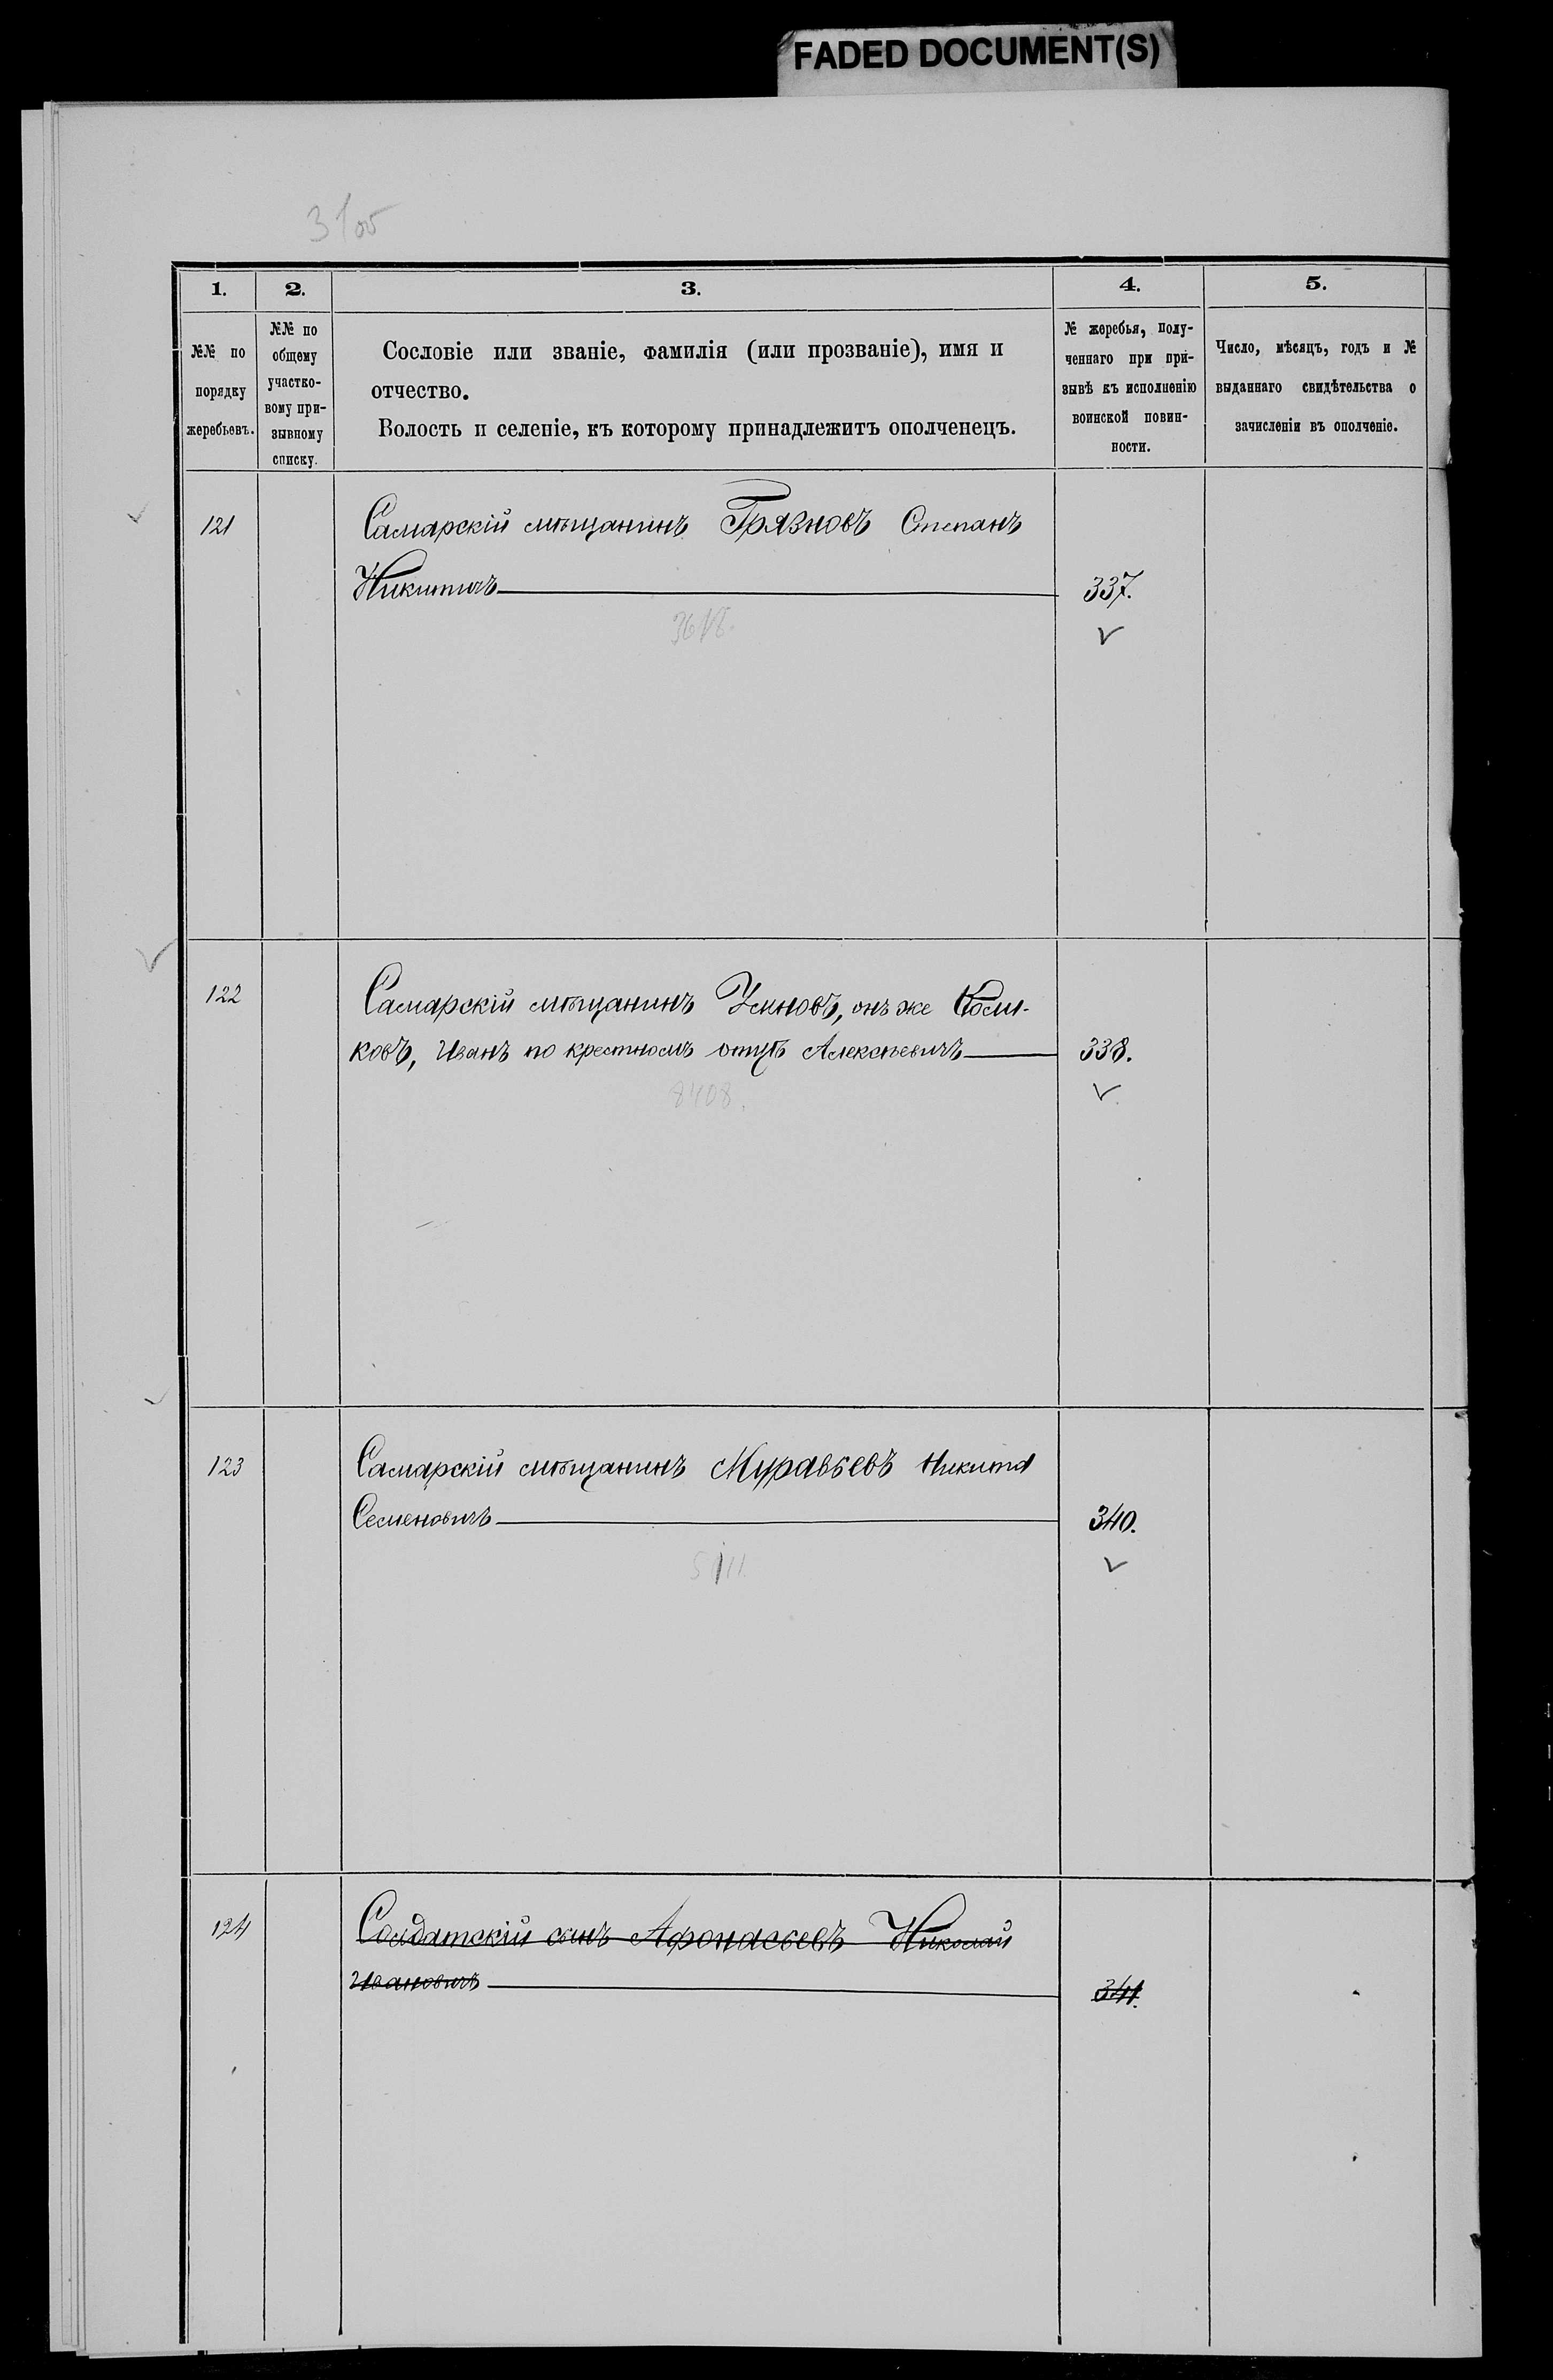 FADED DOCUMENT(S)
1.
2.
3.
4.
5.
№№ по
порядку
жеребьевъ.
№№ по
общему
участко-
вому при-
зывному
списку.
Сословіе или званіе, фамилія (или прозваніе), имя и
отчество.
Волость и селеніе, къ которому принадлежитъ ополченецъ.
№ жеребья, полу-
ченнаго при при-
зывѣ къ исполненію
воинской повин-
ности.
Число, мѣсяцъ, годъ и №
выданнаго свидѣтельства о
зачисленіи въ ополченіе.
121
Самарскій мѣщанинъ Грязновъ Степанъ
Никитичъ
337.
122
Самарскій мѣщанинъ онъ же
ковъ, Иванъ по крестному отцѣ Алексѣевичъ
338.
8408.
123
Самарскій мѣщанинъ Муравьевъ Никита
Семеновичъ
340.
124
Солдатскій сынъ Афонасьевъ Николай
Ивановичъ
341.